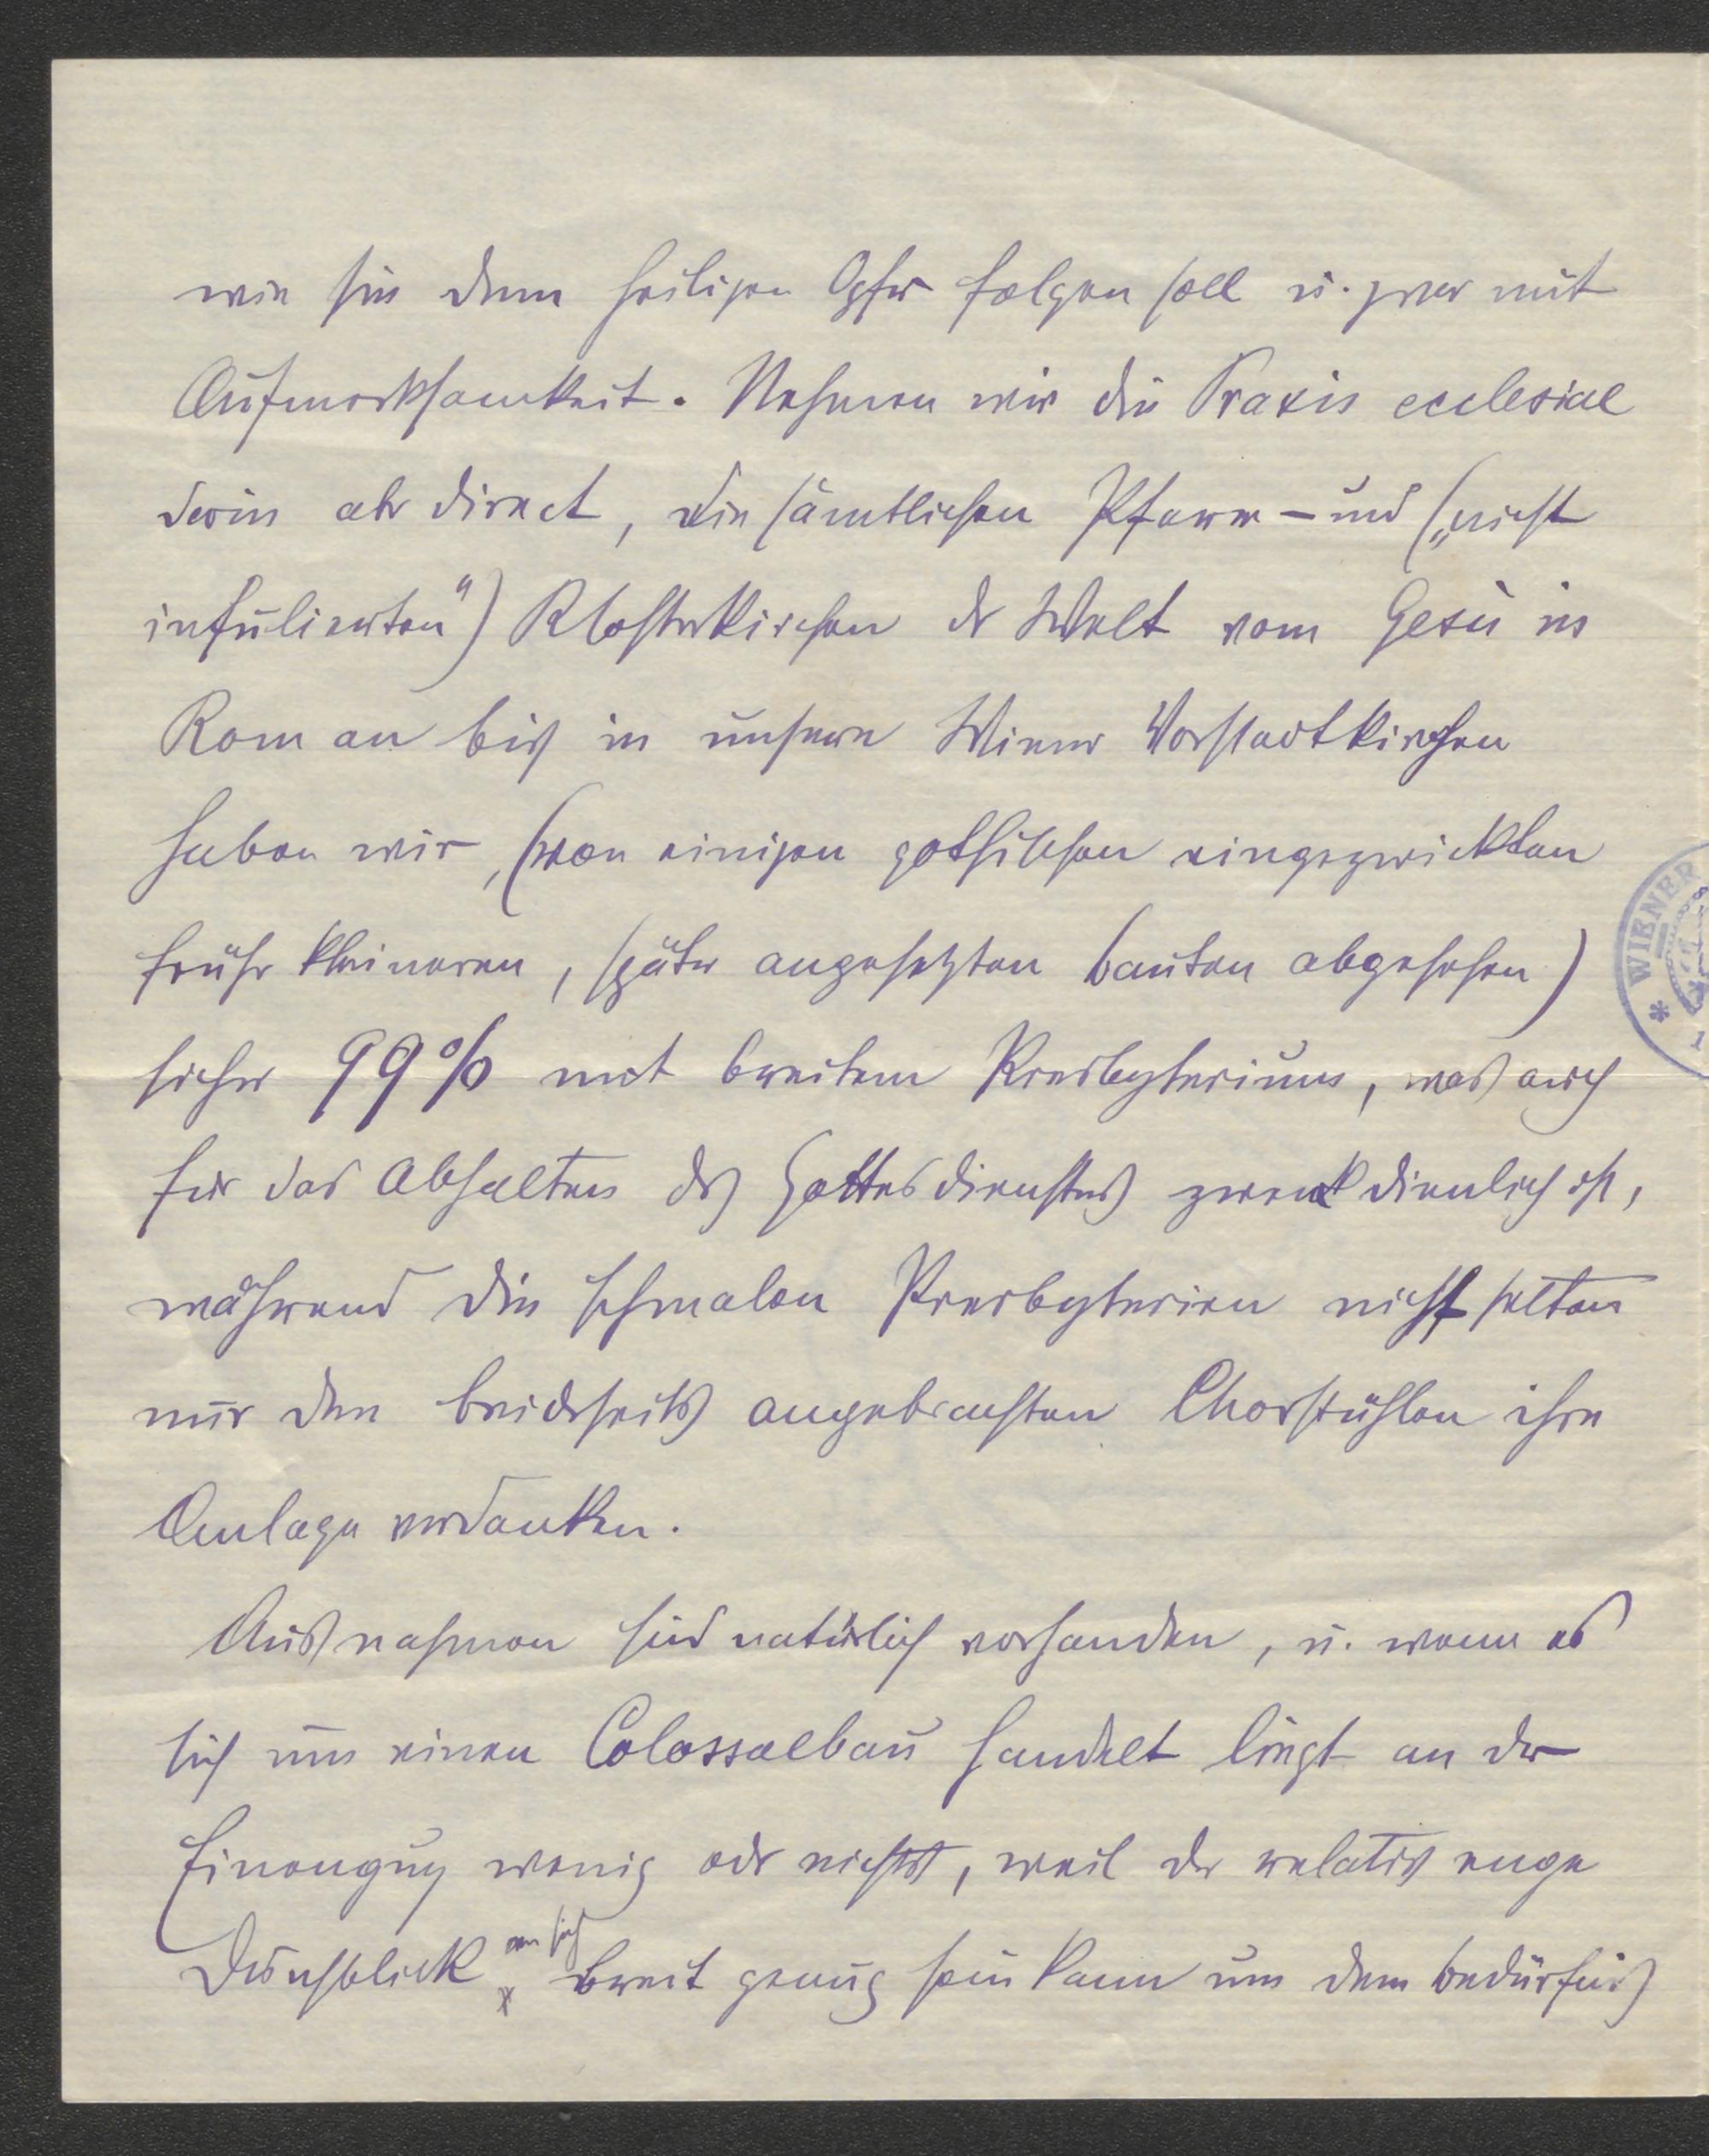 wie sie dem heiligen Opfer folgen soll u. zwar mit
Aufmerksamkeit. Nehmen wir die Praxis ecclesiae
darin aber direct, die sämtlichen Pfarr- und („nicht
infulierten") Klosterkirchen der Welt vom Gesù in
Rom an bis in unsere Wiener Vorstadtkirchen
haben wir, (von einigen gothischen eingezwickten
früher kleineren, später angesetzten bauten abgesehen)
sicher 99% mit breitem Presbyterium, was auch
für das Abhalten des Gottesdienstes zweckdienlich ist,
während die schmalen Presbyterien nicht selten
nur den beiderseits angebrachten Chorstühlen ihre
Anlage verdanken.
Ausnahmen sind natürlich vorhanden, u. wenn es
sich um einen Colossalbau handelt liegt an der
Einengung wenig oder nichts, weil der relativ enge
Durchblick an sich breit genug sein kann um dem bedürfnis
WIENER